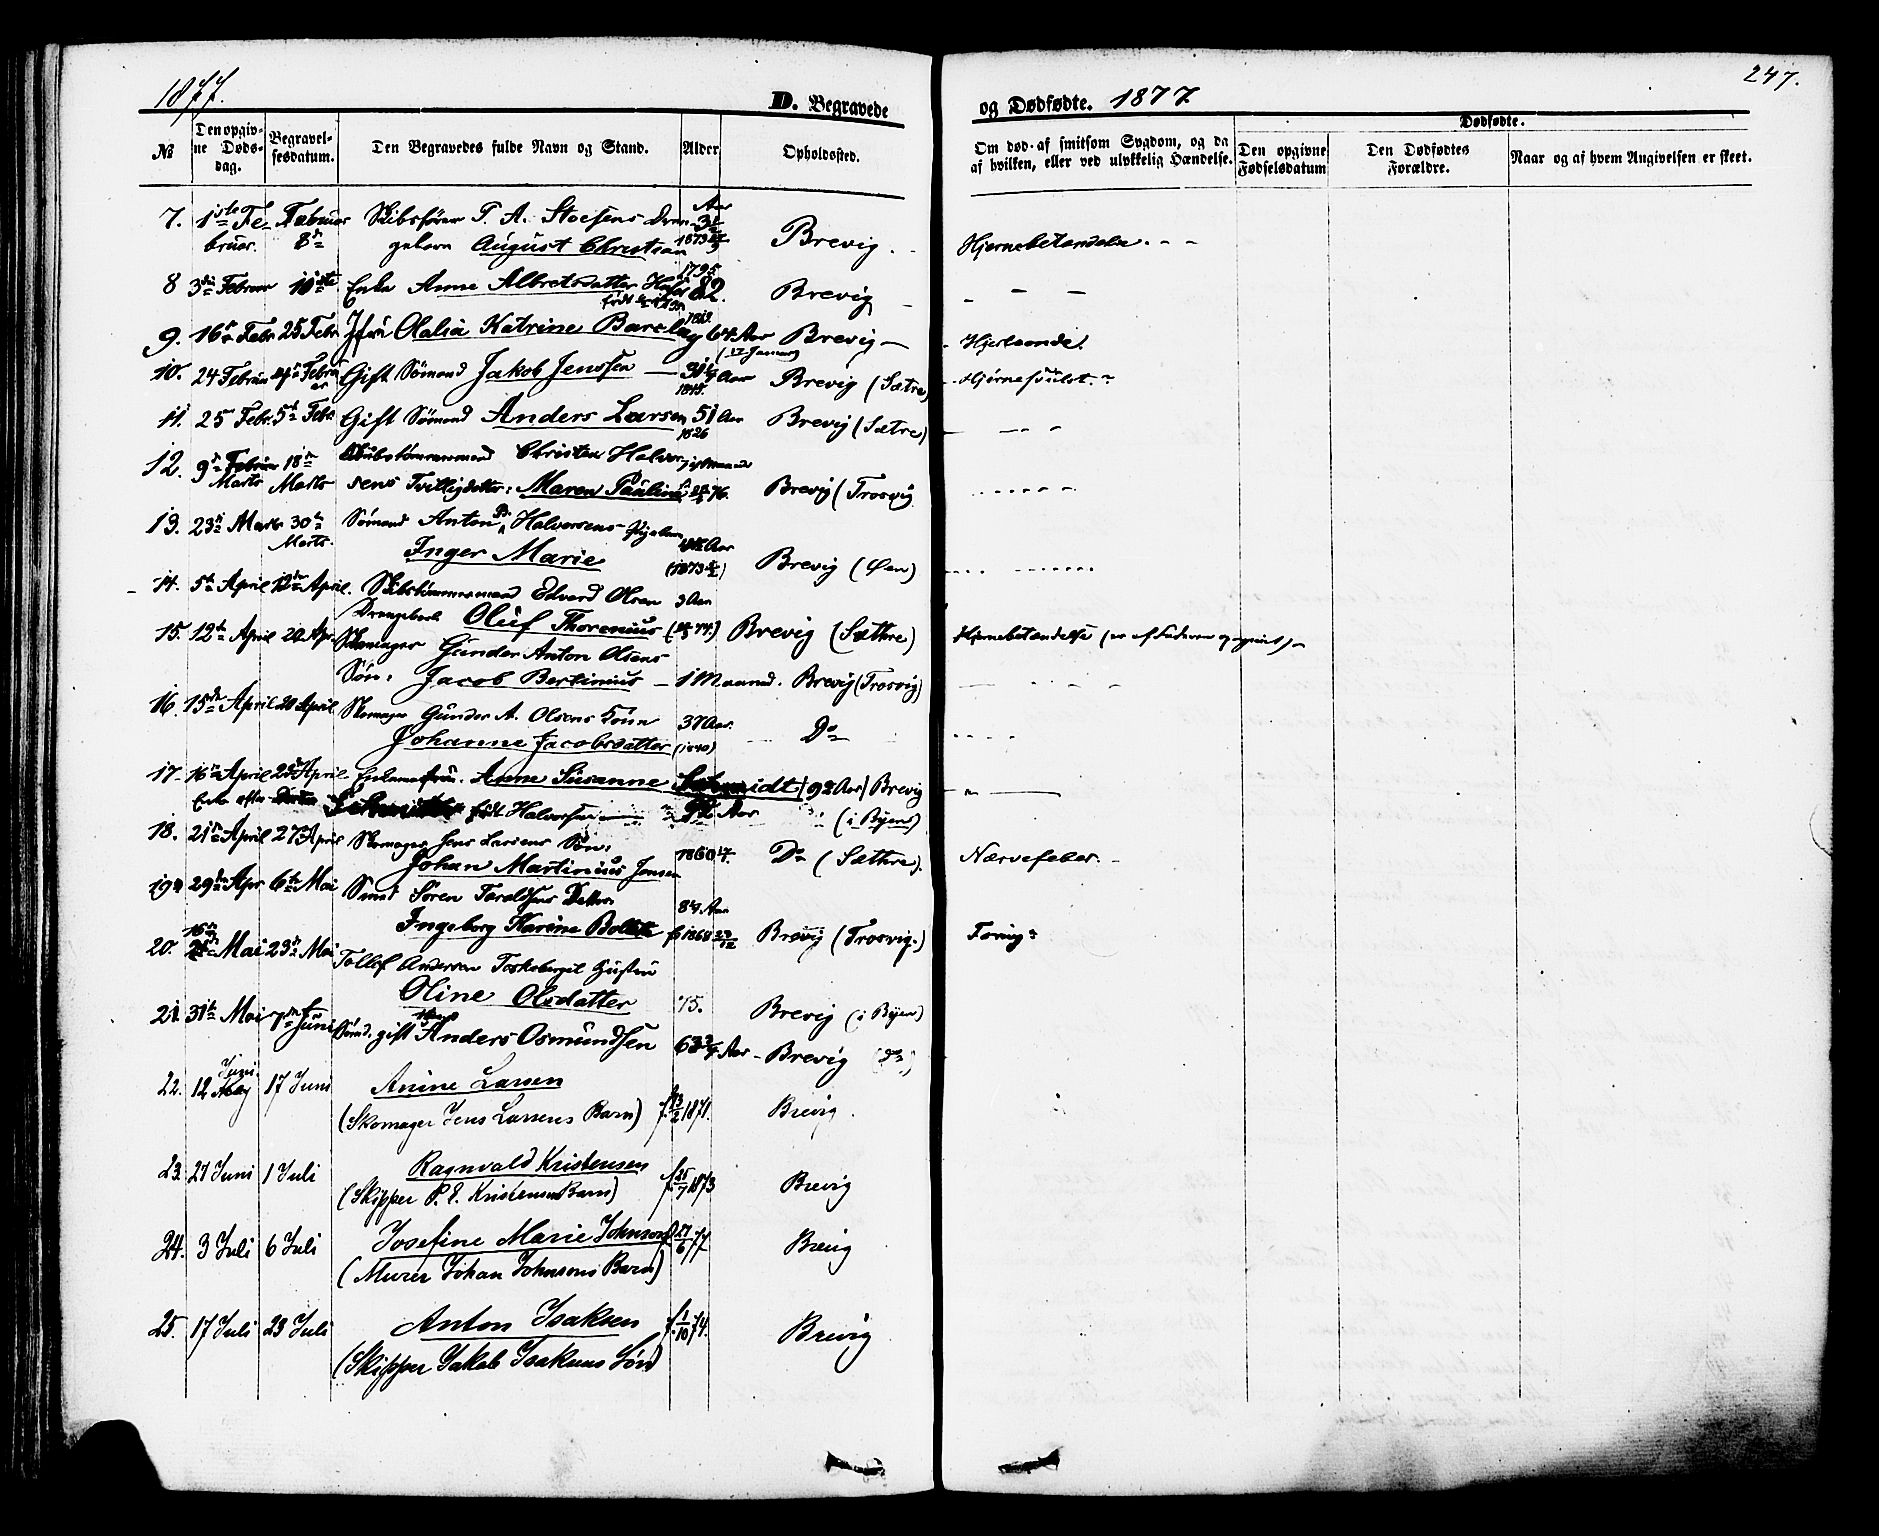 1877.
D. Begravede
og Dødfødte. 1877
247.
№
Den opgivne Døds-dag.
Begravelsesdatum.
Den Begravedes fulde Navn og Stand.
Alder
Opholdssted.
Om død af smitsom Sygdom, og da af hvilken, eller ved ulykkelig Hændelse.
Dødfødte.
Den opgivne Fødselsdatum
Den Dødfødtes Forældre.
Naar og af hvem Angivelsen er skeet.
7. 1ste Fe- Februar Skibsfører T. A. Stoesens Dren- Aar
bruar. 8de gebarn August Christian Brevig. Hjernebetændelse. - -
8 3die Februar 10de Enke Anne Albretsdatter 1795 82. Brevig
9. 16de Febr 25 Febr Jfr Olalia Katrine Barclay 64 Aar Brevig — Hjerteonde.
10. 24 Februar Gift Sømand Jakob Jenssen — Aar Brevig (Sætre) Hjernesvulst.
1845.
11. 25 Febr. 5te Gift Sømand Anders Larsen 51 Aar Brevig (Sætre) — - -
1826
12. 9de Februar 18de Skibstømmermand Christen Halvor-
Marts Marts sens Tvillingdatter: Maren Pauline 76. Brevig (Trosvig
13. 23de Marts 30te Sømand Anton Halvorsens Pigebarn
Marts. Inger Marie Aar Brevig (Øen)
(1873)
14. 5te April 12te April. Skibstømmermand Edvard Olsen 3 Aar
Drengebarn Oluf Thorenius 74.) Brevig (Sæthre) Hjernebetændelse
15. 12te April 20 Apr. Skomager Gunder Anton Olsens
Søn: Jacob Bertinius — 1 Maaned. Brevig (Trosvig)
16. 15de April 20 April Skomager Gunder A. Olsens Kone 37 Aar.
Johanne Jacobsdatter (1840) Do
17. 16de April 25 April Enkemadam. Anne Susanne Schmidt (92 Aar) Brevig
Enke efter født Halvorsen — 92 Aar (i Byen)
18. 21de April 27 April Skomager Jens Larsens Søn:
Johan Martinius Jensen 1860 Do (Sæthre). Nervefeber. -
19. 29de Apr 6te Mai Smed Søren Taraldsens Datter
8 Aar
Ingeborg Karine f 1868 Brevig (Trosvig.)
20. 16de Mai 23de Mai Tollef Andersen Hustru
Oline Olsdatter 75. Brevig (i Byen)
21. 31te Mai 7de Juni Sømd. gift Anders Osmundsen 63 Aar - Brevig (Do)
22. 12 Juni May 17 Juni Anine Larsen
(Skomager Jens Larsens Barn) f. 13/2 1871. Brevig.
23. 27 Juni 1 Juli Ragnvald Kristensen
(Skipper P. E. Kristensens Barn) f. 25/7 1873 Brevig
24. 3 Juli 6 Juli Josefine Marie Johnsen f. 21/6 77 Brevig
(Murer Johan Johnsens Barn)
25. 17 Juli 23 Juli Anton Isaksen f. 1/10 74. Brevig
(Skipper Jakob Isaksens Søn)